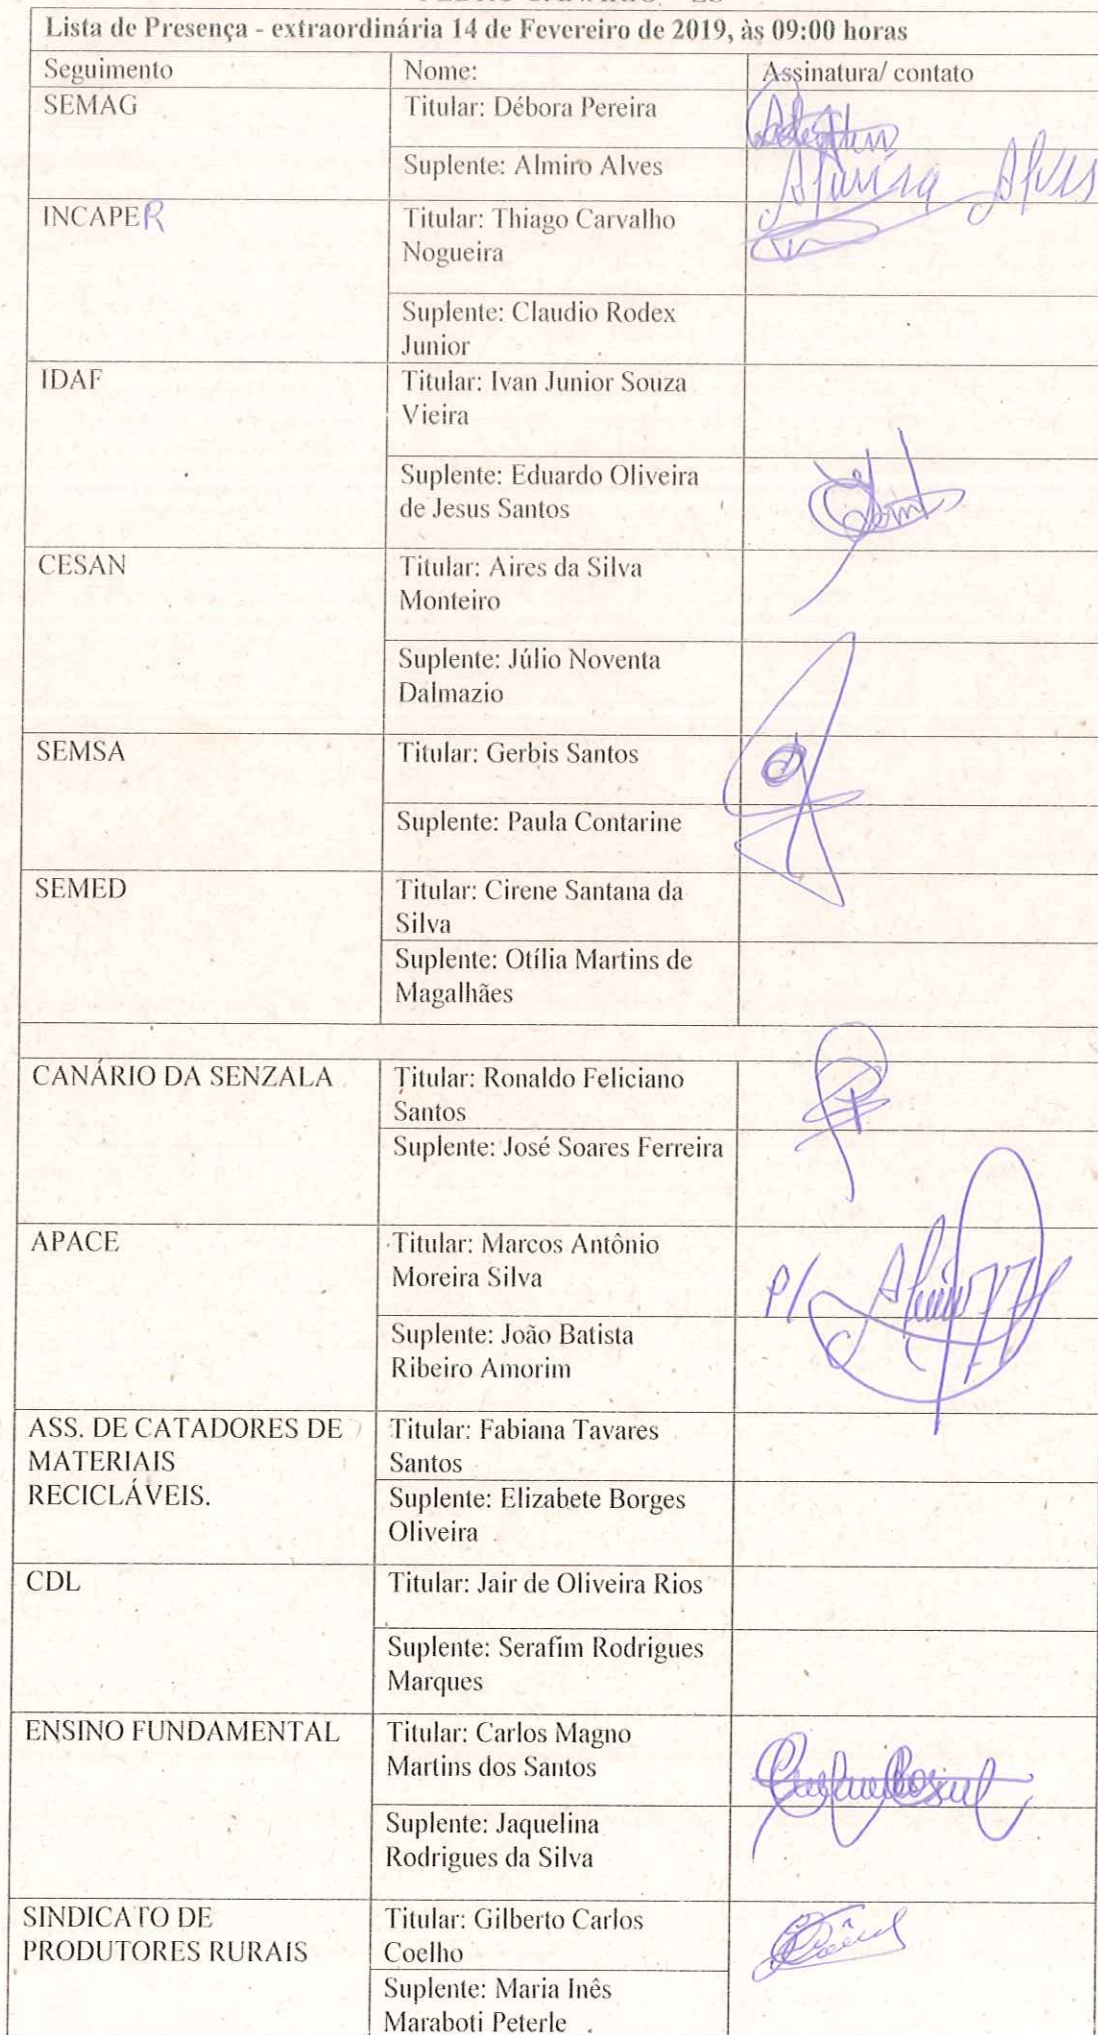 Lista de Presença - extraordinária 14 de Fevereiro de 2019, às 09:00 horas
Seguimento Nome: Assinatura/ contato
SEMAG Titular: Débora Pereira
Suplente: Almiro Alves
Alves
INCAPER Titular: Thiago Carvalho
Nogueira
Suplente: Claudio Rodex
Junior
IDAF Titular: Ivan Junior Souza
Vieira
Suplente: Eduardo Oliveira
de Jesus Santos
CESAN Titular: Aires da Silva
Monteiro
Suplente: Júlio Noventa
Dalmazio
SEMSA Titular: Gerbis Santos
Suplente: Paula Contarine
SEMED Titular: Cirene Santana da
Silva
Suplente: Otília Martins de
Magalhães
CANÁRIO DA SENZALA Titular: Ronaldo Feliciano
Santos
Suplente: José Soares Ferreira
APACE Titular: Marcos Antônio
Moreira Silva
P/
Suplente: João Batista
Ribeiro Amorim
ASS. DE CATADORES DE Titular: Fabiana Tavares
MATERIAIS Santos
RECICLÁVEIS. Suplente: Elizabete Borges
Oliveira
CDL Titular: Jair de Oliveira Rios
Suplente: Serafim Rodrigues
Marques
ENSINO FUNDAMENTAL Titular: Carlos Magno
Martins dos Santos
Suplente: Jaquelina
Rodrigues da Silva
SINDICATO DE Titular: Gilberto Carlos
PRODUTORES RURAIS Coelho
Suplente: Maria Inês
Maraboti Peterle